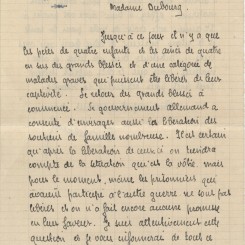 Madame Dubourg
Jusqu'à ce jour il n'y a que
les pères de quatre enfants et les aînés de quatre
en sus des grands blessés et d'une catégorie de
malades graves qui puissent être libérés de leur
captivité. Le retour des grands blessés a
commencé. Le gouvernement allemand a
consenti d'envisager aussi la libération des
soutiens de famille nombreuse. Il est certain
qu'après la libération de ceux-ci on tiendra
compte de la situation qui est la vôtre mais
pour le moment, même les prisonniers qui
avaient participé à l'autre guerre ne sont pas
libérés et on n'a fait encore aucune promesse
en leur faveur. Je suis attentivement cette
question et je vous informerai de tout ce